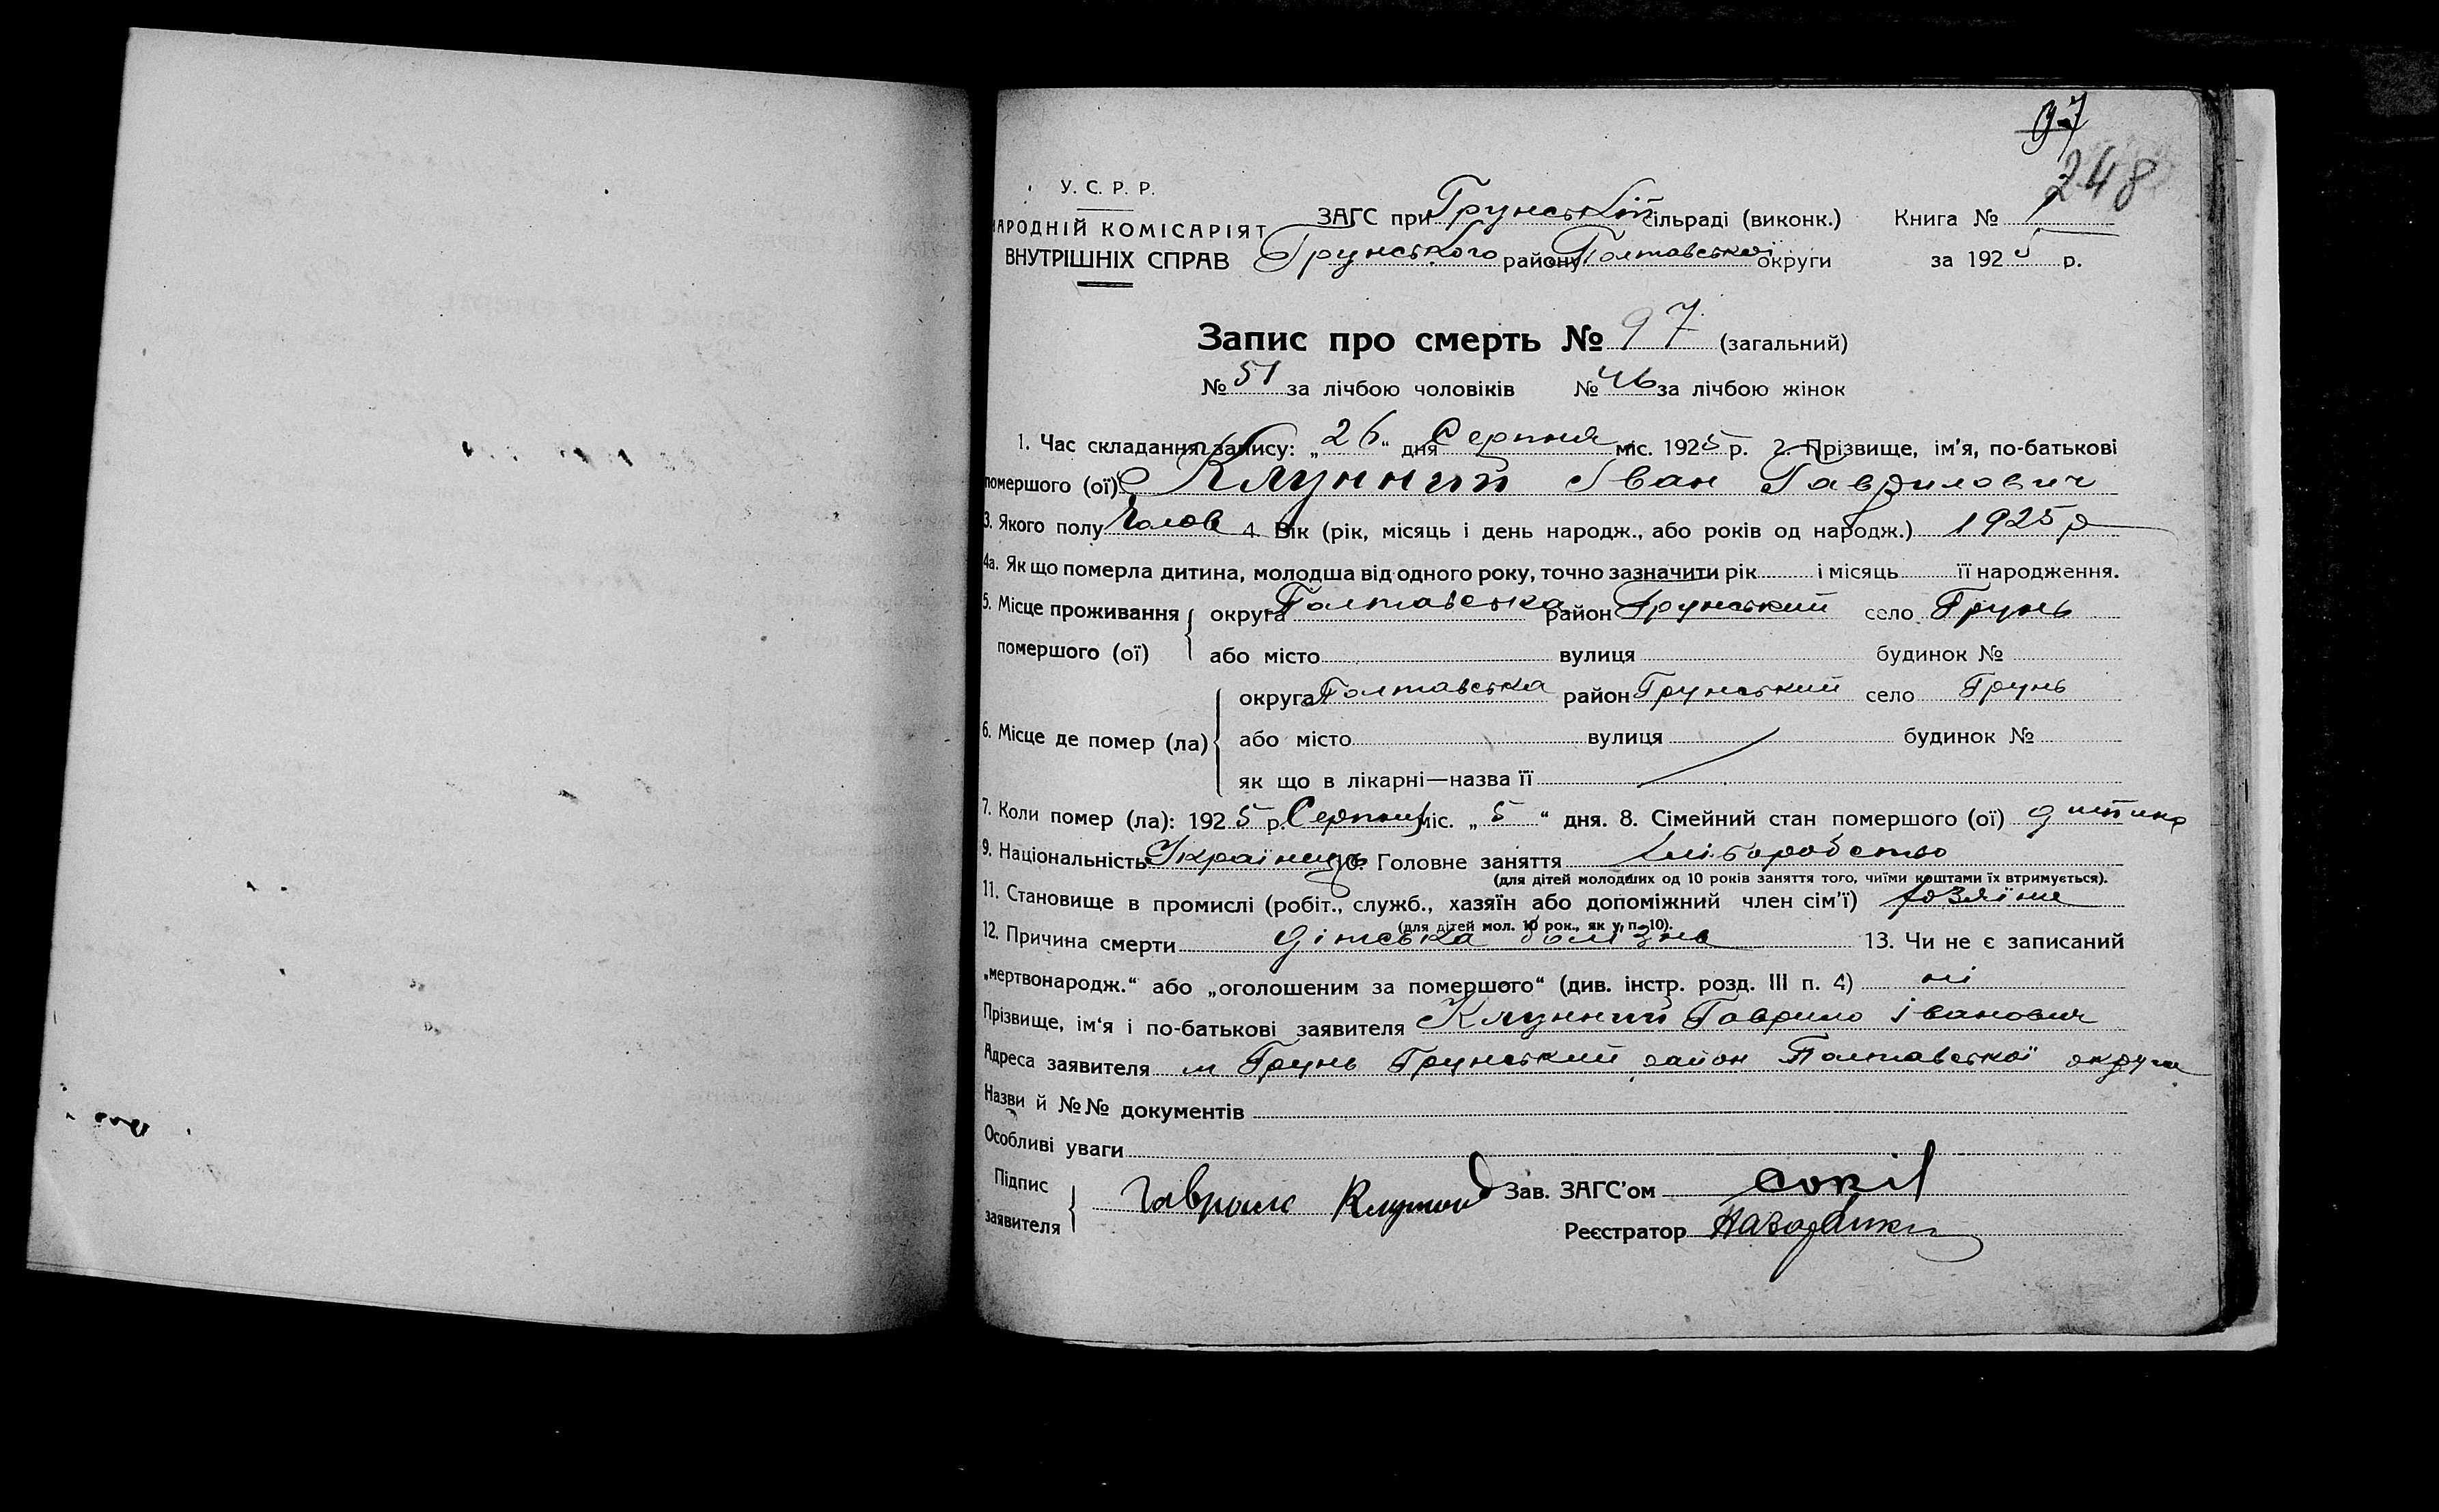 97
248
У. С. Р. Р.
НАРОДНІЙ КОМІСАРІЯТ
ВНУТРІШНІХ СПРАВ
ЗАГС при Грунській сільраді (виконк.) Книга №
Грунського району Полтавської округи за 1925 р.
Запис про смерть № 97 (загальний)
№ 51 за лічбою чоловіків № 46 за лічбою жінок
1. Час складання запису: „26“ дня Серпня міс. 1925 р. 2. Прізвище, ім'я, по-батькові
помершого (ої) Клунний Іван Гаврилович
3. Якого полу Чолов 4. Вік (рік, місяць і день народж., або років од народж.) 1925 р
4а. Як що померла дитина, молодша від одного року, точно зазначити рік і місяць її народження.
5. Місце проживання помершого (ої) округа Полтавська район Грунський село Грунь
або місто вулиця будинок №
6. Місце де помер (ла) округа Полтавська район Грунський село Грунь
або місто вулиця будинок №
як що в лікарні—назва її
7. Коли помер (ла): 1925 р. Серпня міс. „5“ дня. 8. Сімейний стан помершого (ої) дитина
9. Національність Українець 10. Головне заняття хліборобство
(для дітей молодших од 10 років заняття того, чиїми коштами їх втримується).
11. Становище в промислі (робіт., служб., хазяїн або допоміжний член сім'ї) хозяїни
(для дітей мол. 10 рок., як у п. 10).
12. Причина смерти дітська болізнь 13. Чи не є записаний
„мертвонародж.“ або „оголошеним за помершого“ (див. інстр. розд. III п. 4) ні
Прізвище, ім'я і по-батькові заявителя Клунний Гаврило Іванович
Адреса заявителя м Грунь Грунський район Полтавської округи
Назви й №№ документів
Особливі уваги
Підпис заявителя Зав. ЗАГС'ом
Реєстратор